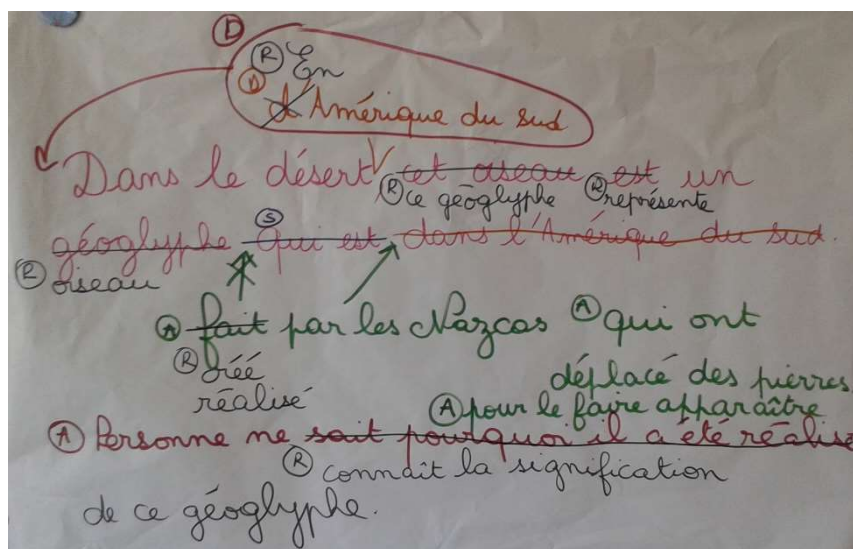 D
R En
D d'Amérique du sud
Dans le désert cet oiseau est un
R ce géoglyphe R représente
géoglyphe S qui est dans l'Amérique du sud.
R oiseau
A fait par les Nazcas A qui ont
R créé déplacé des pierres
réalisé A pour le faire apparaître
A Personne ne sait pourquoi il a été réalisé
R connaît la signification
de ce géoglyphe.